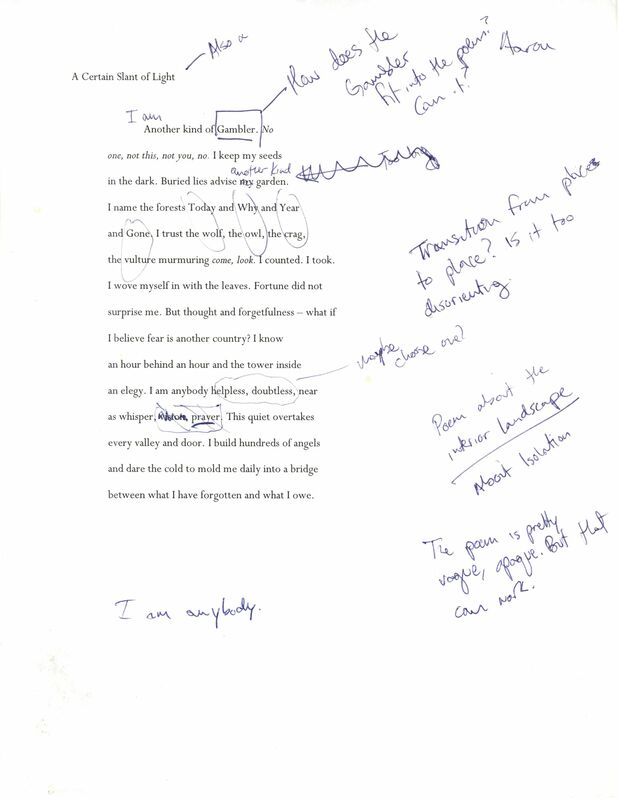 Also a
How does the
Gambler
fit into the poem?
Can it?
Aaron
A Certain Slant of Light
I am
Another kind of Gambler. No
one, not this, not you, no. I keep my seeds
another kind
in the dark. Buried lies advise my garden.
I name the forests Today and Why and Year
and Gone. I trust the wolf, the owl, the crag,
the vulture murmuring come, look. I counted. I took.
I wove myself in with the leaves. Fortune did not
surprise me. But thought and forgetfulness – what if
I believe fear is another country? I know
an hour behind an hour and the tower inside
an elegy. I am anybody helpless, doubtless, near
as whisper, prayer. This quiet overtakes
every valley and door. I build hundreds of angels
and dare the cold to mold me daily into a bridge
between what I have forgotten and what I owe.
Transition from place
to place? Is it too
disorienting.
maybe
choose one?
Poem about the
interior landscape
About Isolation
The poem is pretty
vague, opaque. But that
can work.
I am anybody.